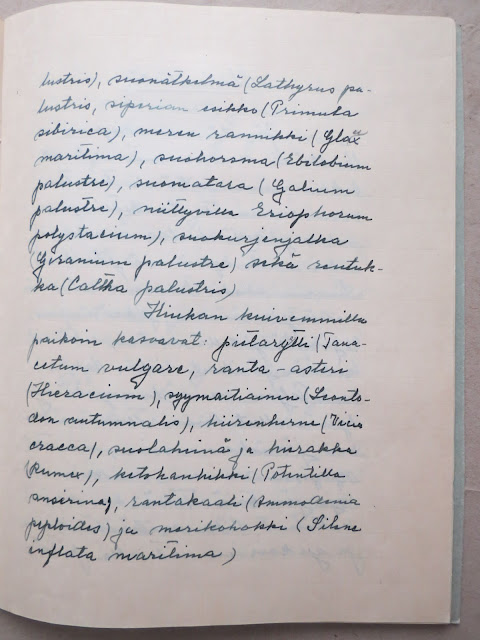 lustris), suonätkelmä (Lathyrus pa-
lustris, siperian esikko (Primula
sibirica), meren rannikki (Glaux
maritima), suohorsma (Ebilobium
palustre), suomatara (Galium
palustre), niittyvilla Eriophorum
polystacium), suokurjenjalka
(Geranium palustre) sekä rentuk-
ka (Caltha palustris)
Hiukan kuivemmilla
paikoin kasvavat: pietaryrtti (Tana-
cetum vulgare, ranta-asteri
(Hieracium), syysmaitiainen (Leonto-
don autumnalis), hiirenherne (Vicia
cracca), suolaheinä ja hierakka
(Rumex), ketohanhikki (Potentilla
anserina), rantakaali (Ammodenia
peploides) ja merikohokki (Silene
inflata maritima)